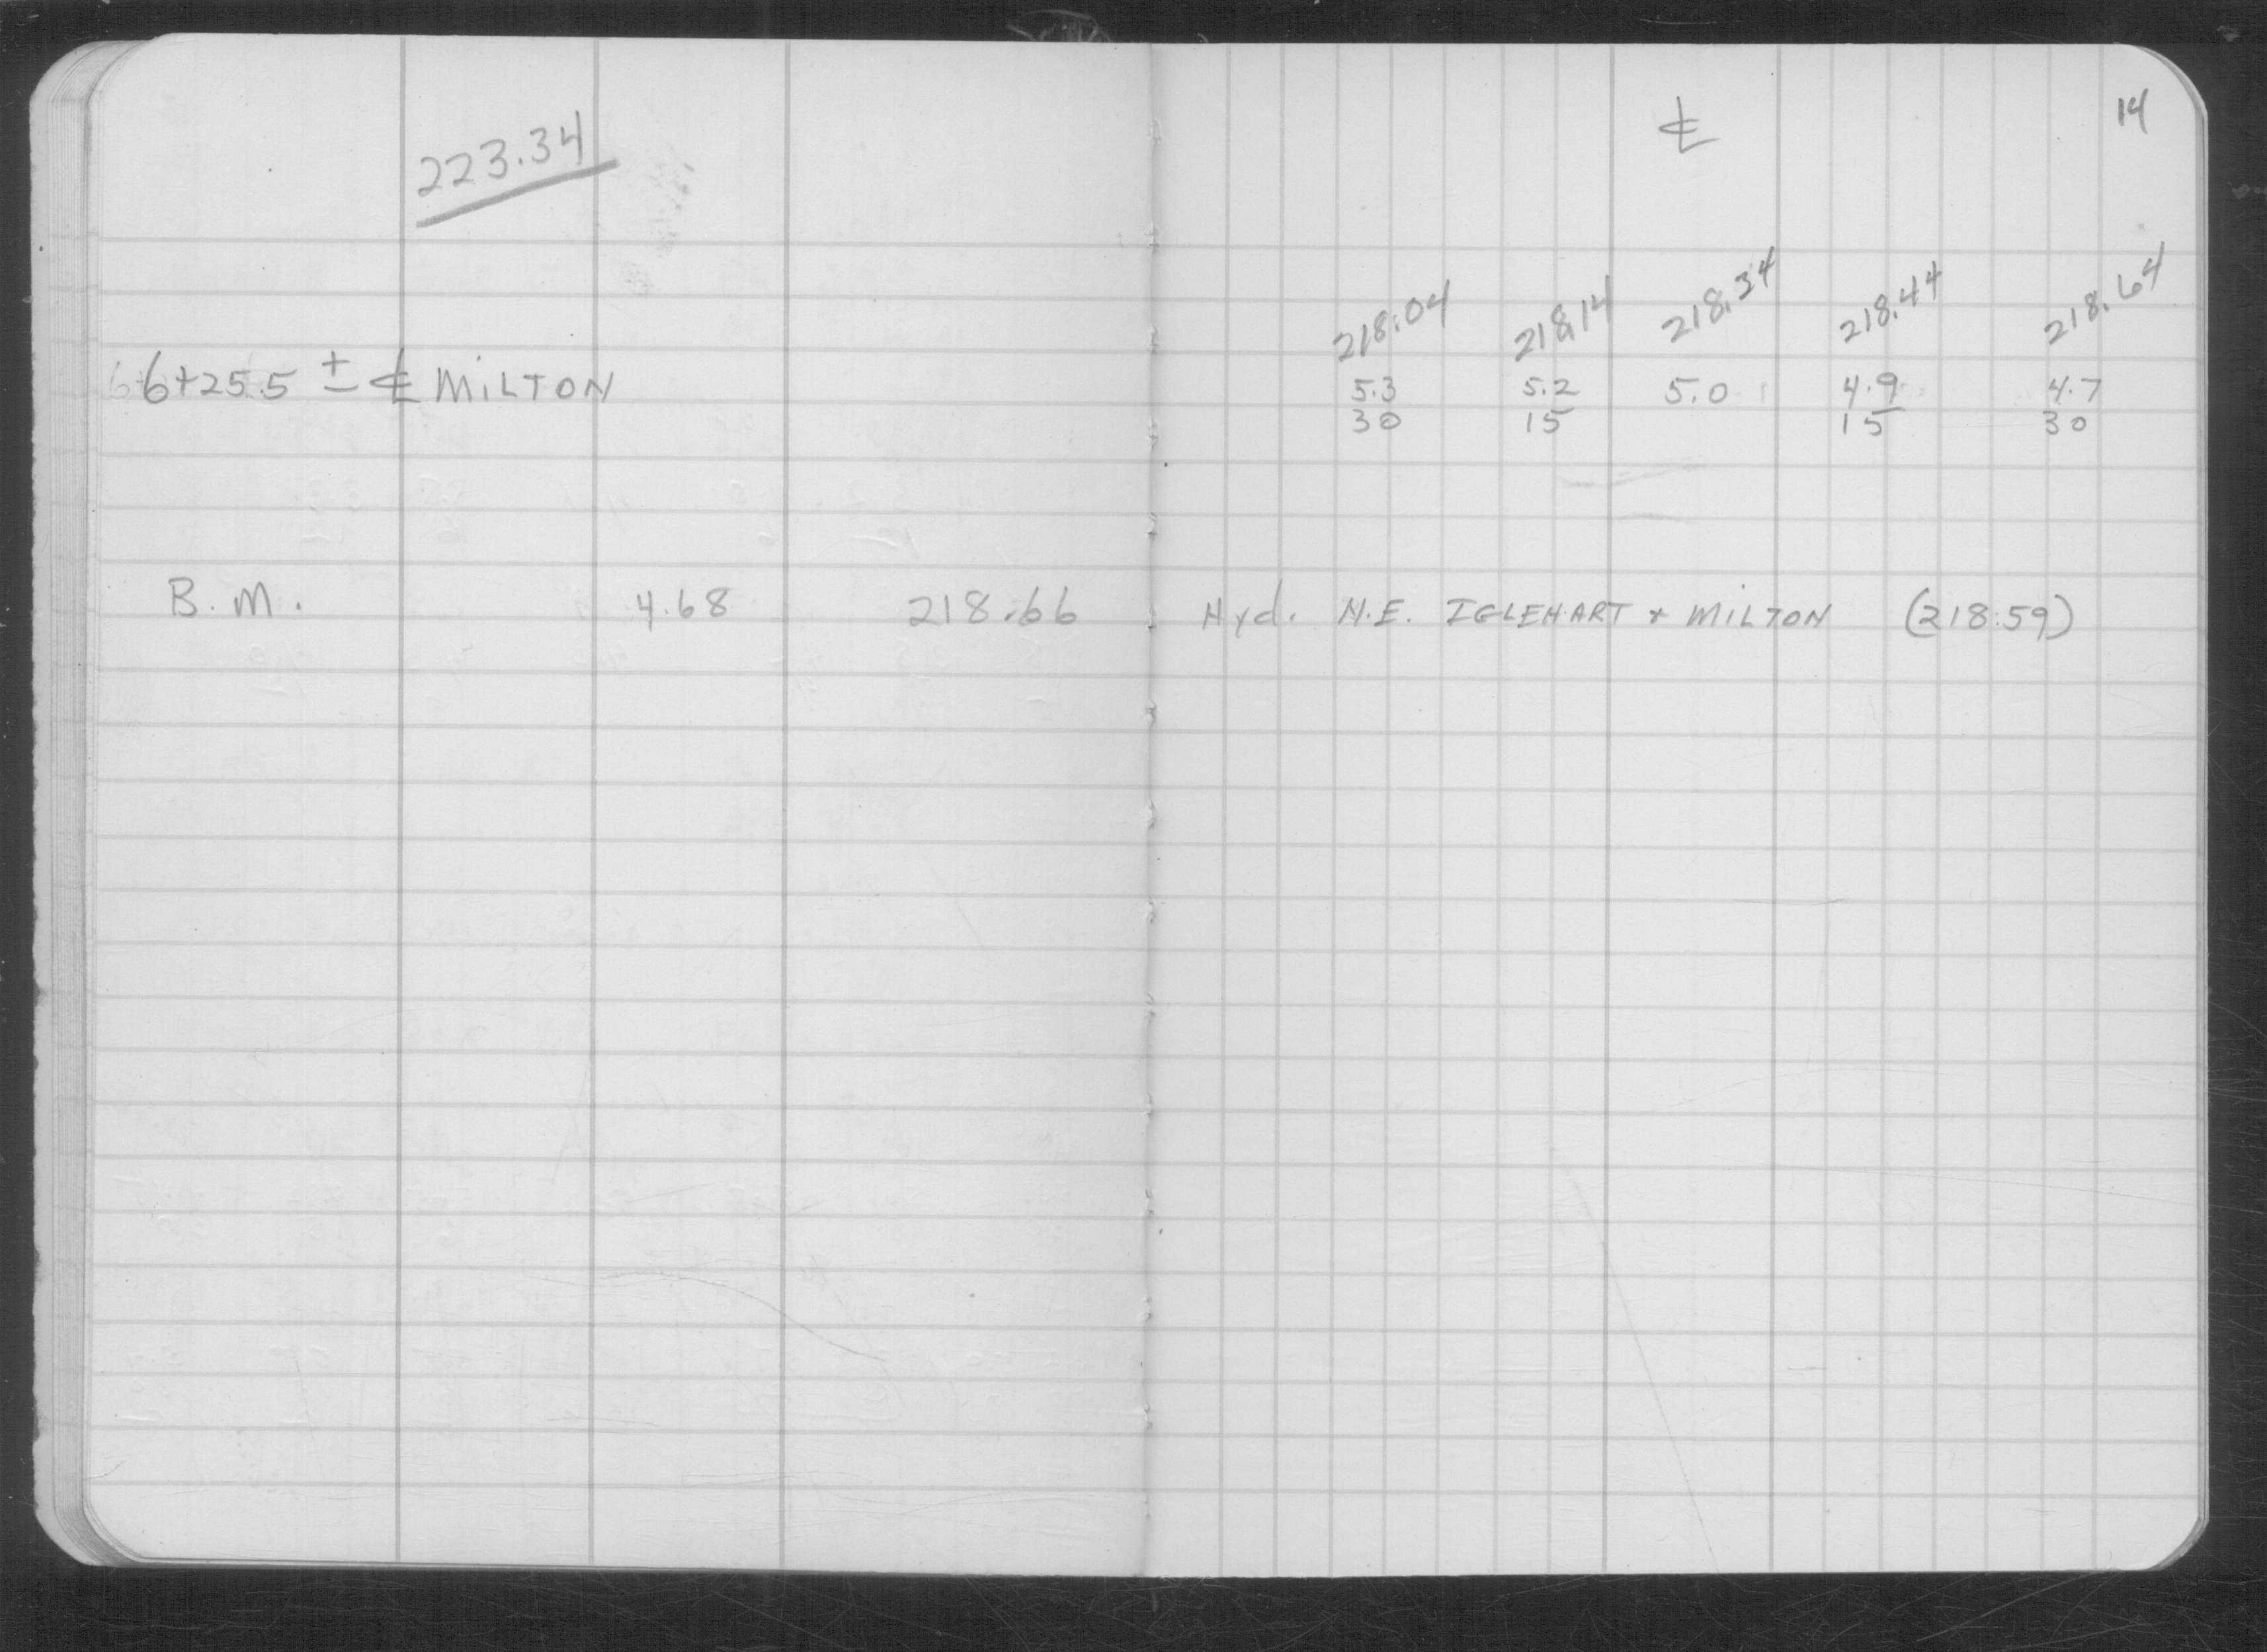 14
223.34
℄
218.04 218.14 218.34 218.44 218.64
6+25.5 ± ℄ MILTON 5.3 5.2 5.0 4.9 4.7
30 15 15 30
B.M. 4.68 218.66 Hyd. N.E. IGLEHART + MILTON (218.59)